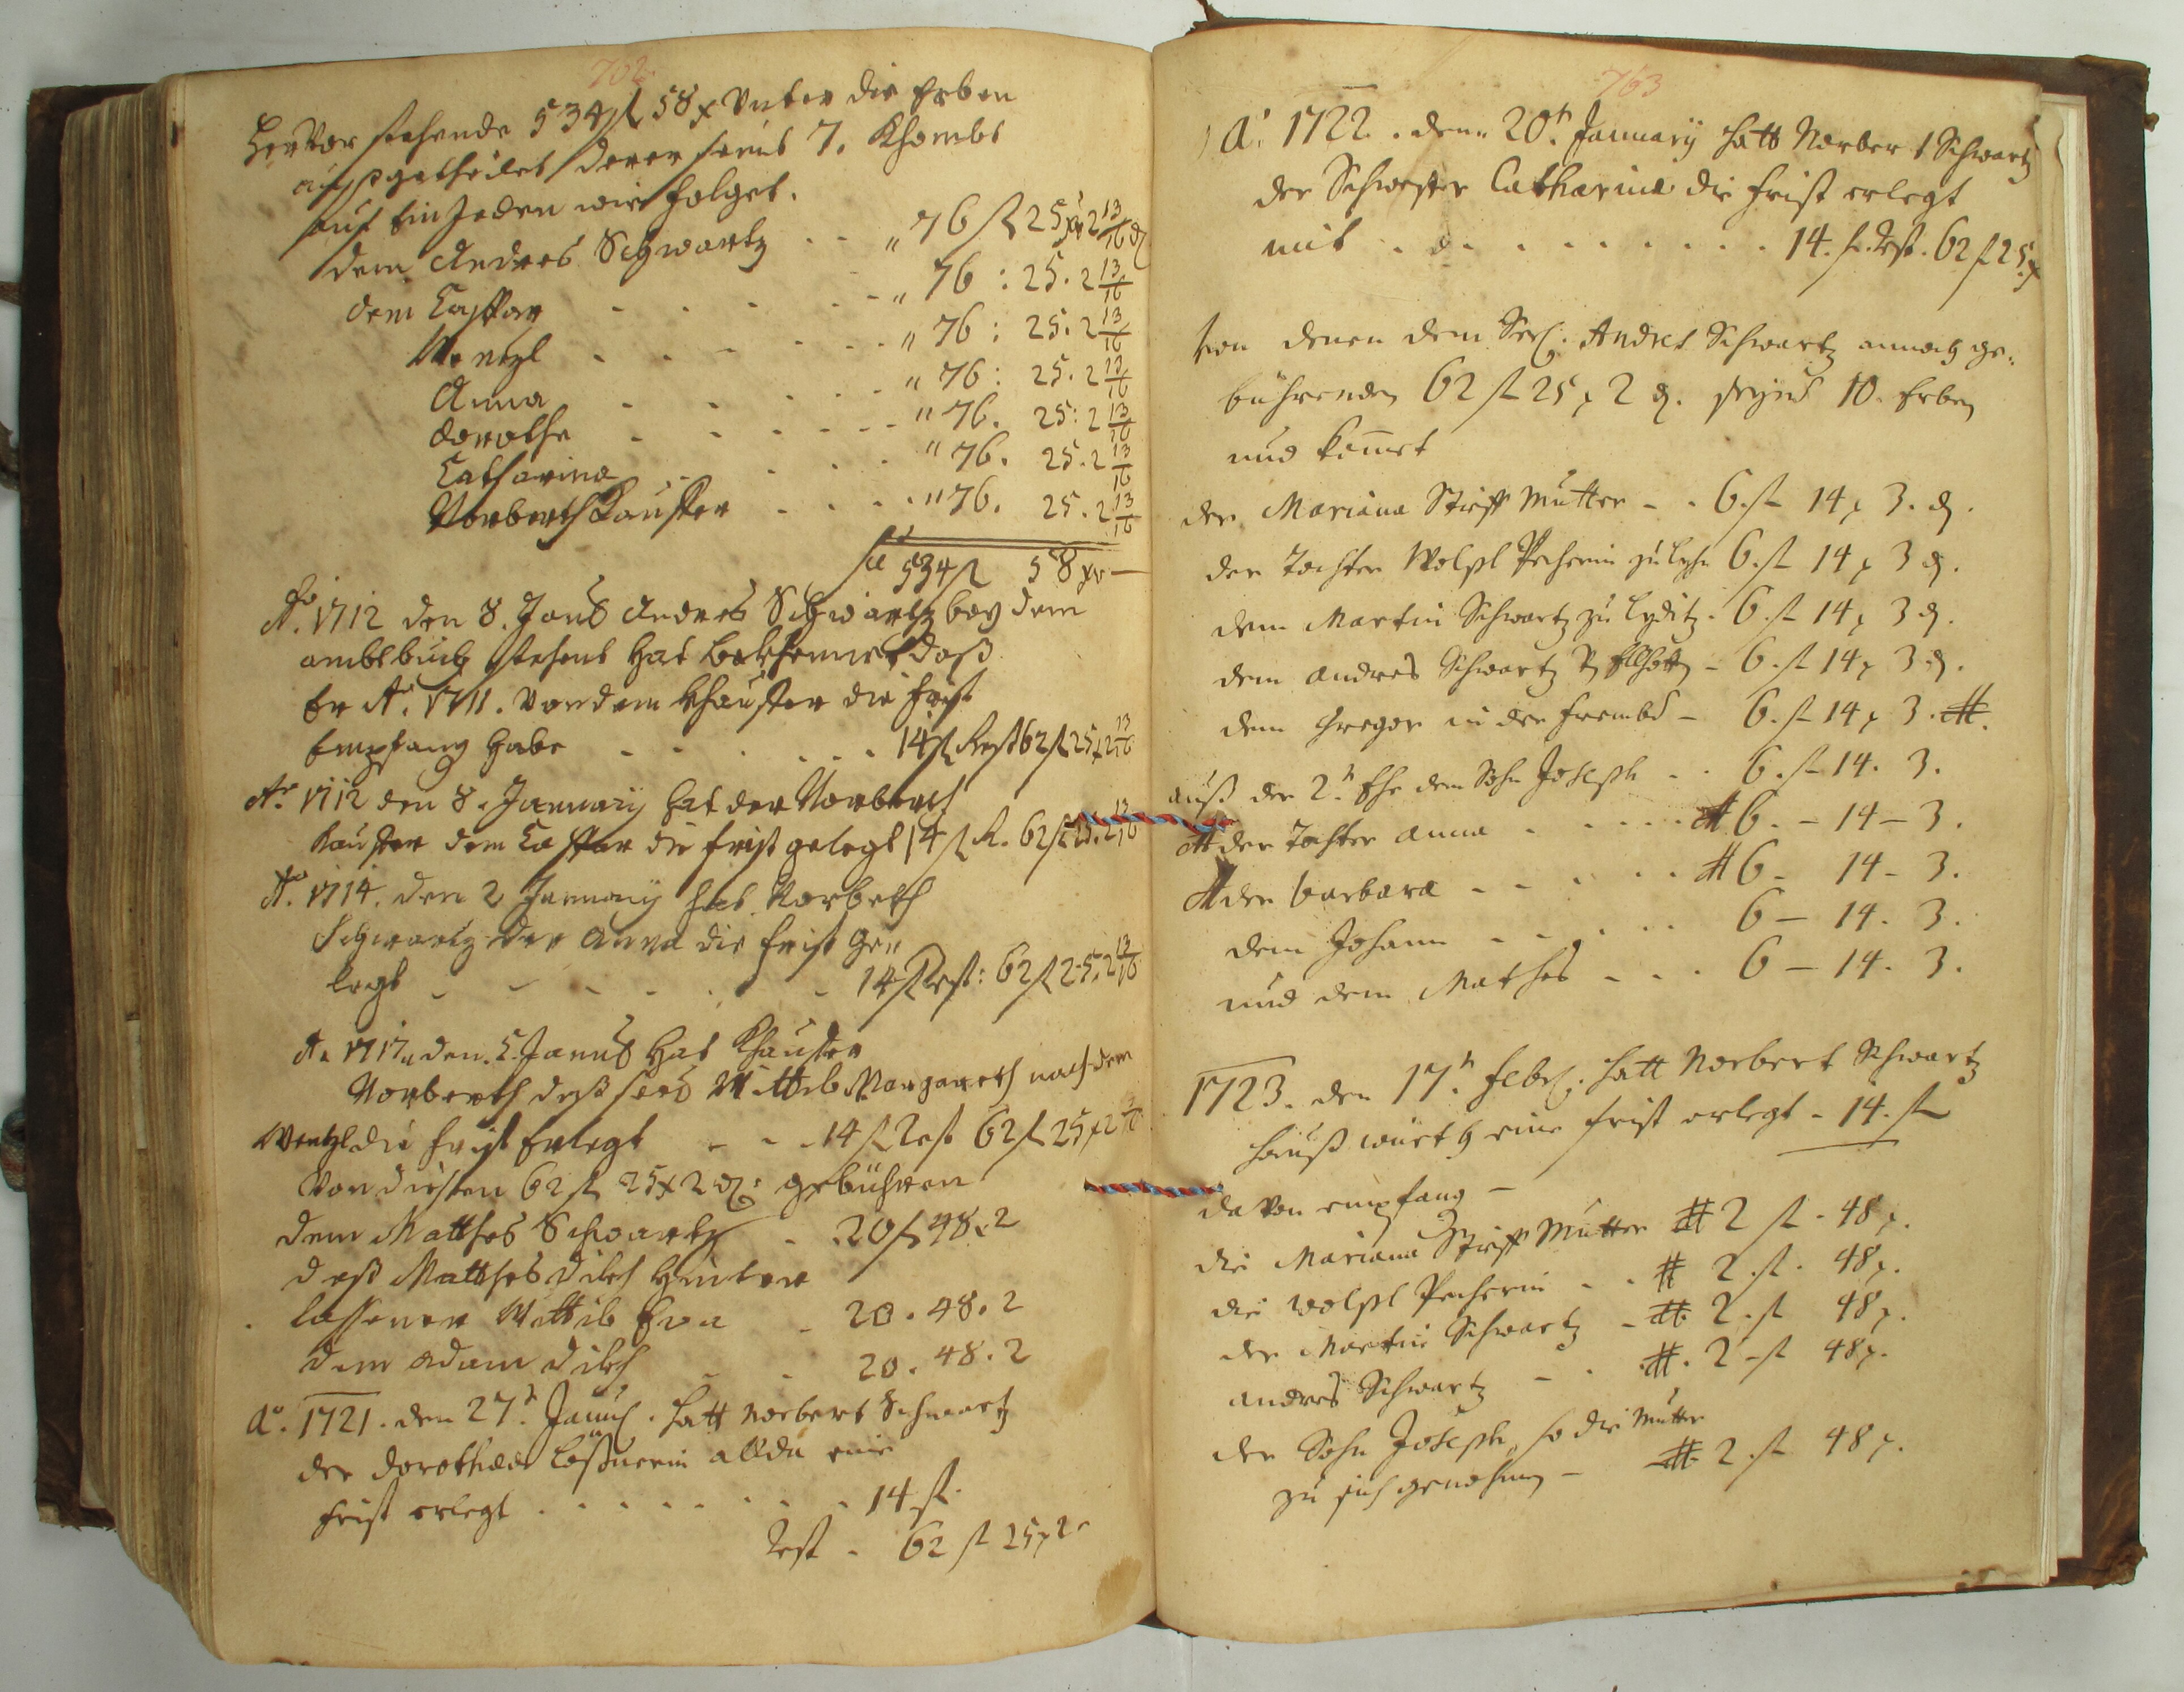 702
HerVor stehende 534 fl 58 x Vnter die Erben
außgetheilet deren seint 7. Khombt
auf Ein Jeden wie folget.
dem Andres Schwartz - - " 76 fl 25 xr 2 13/16 d
dem Casper - - - - - " 76 : 25. 2 13/16
Wentzl - - - - - - " 76 : 25. 2 13/16
Anna - - - - - " 76 : 25. 2 13/16
dorothe - - - - - - " 76. 25: 2 13/16
Catharina - - - - " 76. 25. 2 13/16
Norberth Kauffer - - - - " 76. 25. 2 13/16
534 fl 58 xr —
Ao. 1712 den 8. Janu Andres Schwartz bey dem
ambtbuch stehent hat bekhennet daß
Er Ao. 1711. Von dem Khauffer die frist
Empfang habe - - - - - 14 fl Rest 62 fl 25 x 2 13/16
Ao. 1712 den 8. January hat der Norberth
Kauffer dem Casper die frist gelegt 14 fl R. 62 fl 25. 2 13/16
Ao. 1714. den 2 January hat Norbeth
Schwartz der Anna die frist ge„
legt - - - - - - 14 fl Rest: 62 fl 25. 2 13/16
Ao 1717 den 5. Janu hat Khauffer
Norberth deß Wittib Margareth nach dem
Wentzl die frist Erlegt - - - 14 fl Rest 62 fl 25 x 2 13/16
Von diesen 62 fl 25 x 2 d: gebühren
dem Matthes Schwartz - . 20 fl 48. 2
deß Matthes hinter
lassener Wittib Eva - 20. 48. 2
dem Adam - - 20. 48. 2
Ao. 1721. den 27t. Janu. hatt Norbert Schwartz
der Dorothea allda eine
frist erlegt . - - - - - - - 14 fl.
Rest - 62 fl 25 x 2
763
Ao. 1722. den 20t. January hatt Norbert Schwartz
der Schwester Catharina die frist erlegt
mit - - - - - - - - - 14. fl. Rest. 62 fl 25 x
Von denen dem Seel. Andres Schwartz annoch ge„
bührenden 62 fl 25 x 2 d. seynd 10. Erben
und kommet
der Mariana Stieff Mutter - - 6. fl 14 x 3. d.
der Tochter 6. fl 14 x 3 d.
dem Martin Schwartz zu Lyditz - 6. fl 14 x 3 d.
dem Andres Schwartz - 6. fl 14 x 3 d.
dem Gregor in der frembd - 6. fl 14 x 3. #.
auß der 2t. Ehe dem Sohn Joseph - - 6. fl 14. 3.
# der Tochter Anna - - - - - # 6. - 14 - 3.
# der Barbara - - - - - # 6 - 14 - 3.
dem Johann - - - - - 6 - 14. 3.
und dem Mathes - - - 6 - 14. 3.
1723. den 17t. Febr. hatt Norbert Schwartz
haußwürth eine frist erlegt - 14. fl
da von empfang -
die Mariana Stieff Mutter # 2 fl. 48 x.
die - - # 2. fl. 48 x.
der Martin Schwartz - # 2. fl 48 x.
Andres Schwartz - - # 2 fl 48 x.
der Sohn Joseph, so die Mutter
zu sich genohmen - # 2. fl 48 x.